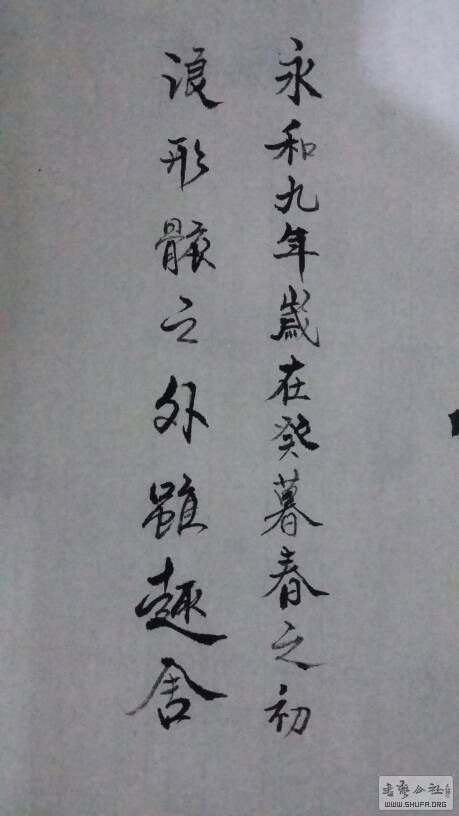 永和九年歲在癸暮春之初
浪形骸之外雖趣舍
书艺公社
WWW.SHUFA.ORG